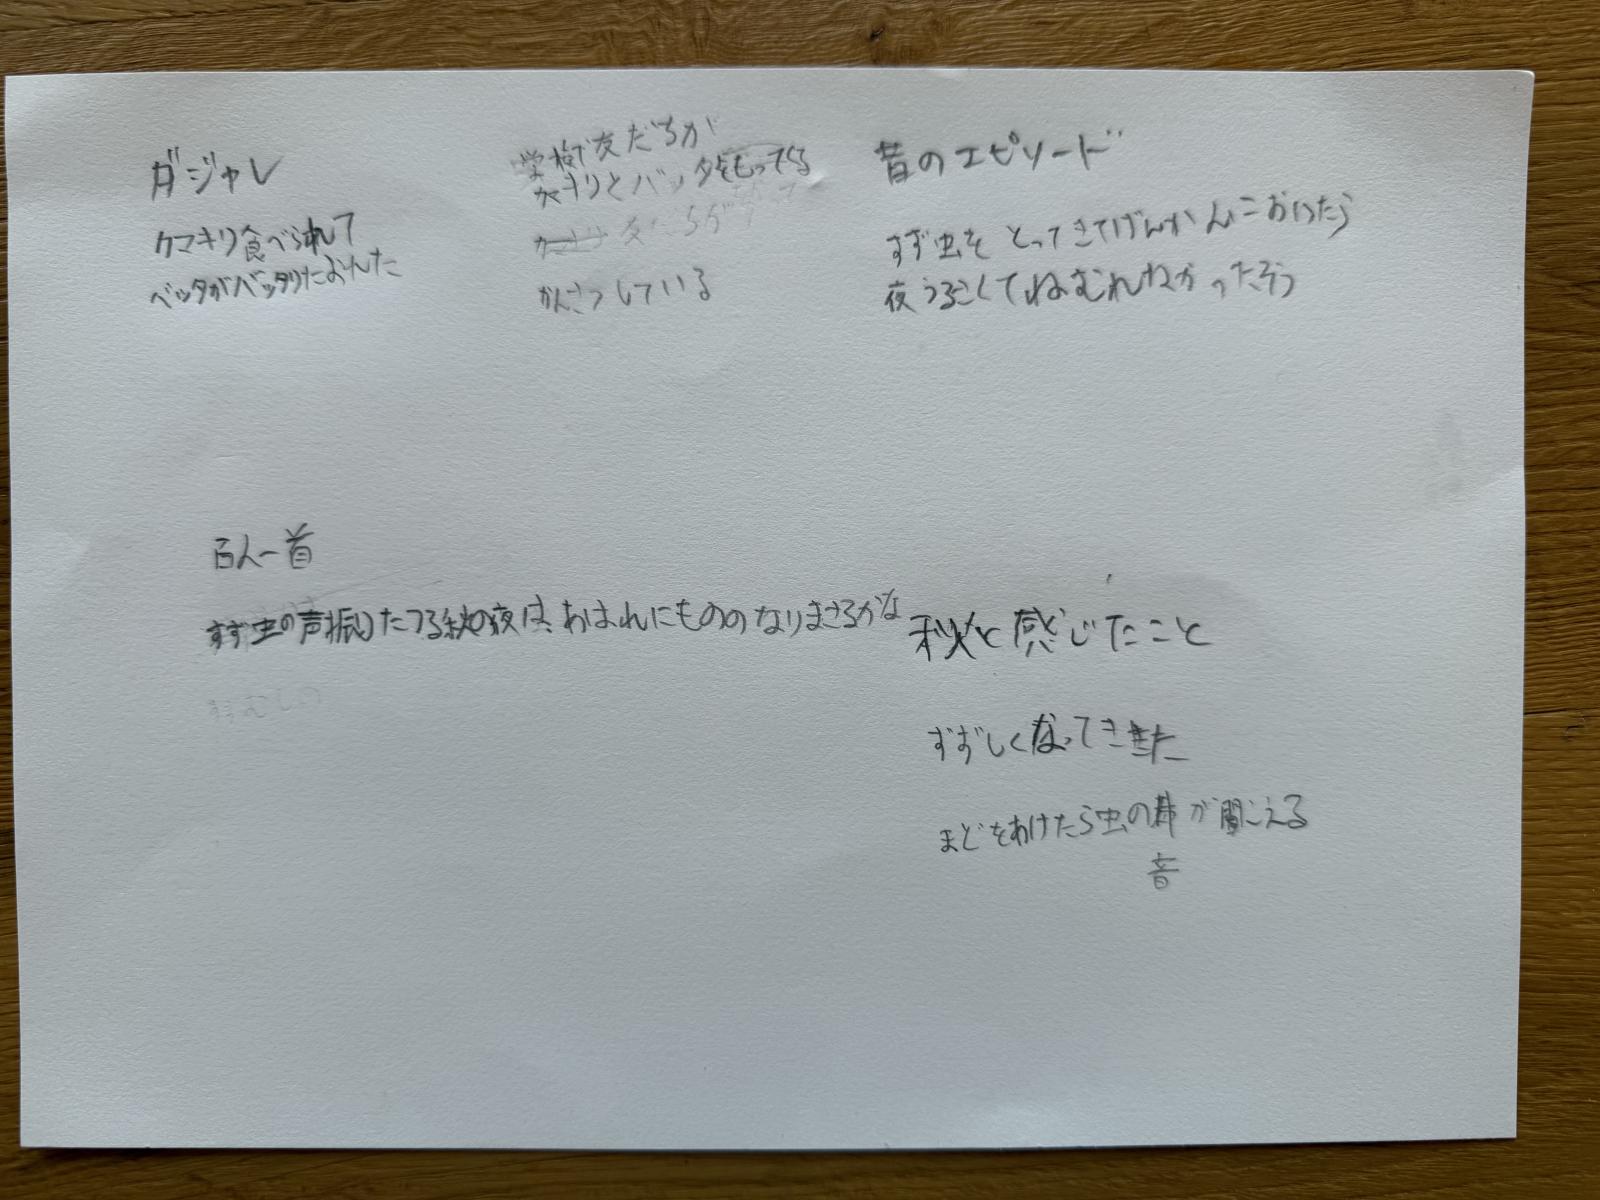 ダジャレ
カマキリ食べられて
バッタがバッタりたおれた
学校で友だちが
カマキリとバッタをもってくる
友だちが
かんさつしている
昔のエピソード
すず虫をとってきてげんかんにおいたら
夜うるさくてねむれなかったそう
百人一首
すず虫の声振りたつる秋の夜は、あはれにもののなりまさるかな
すずむしの
秋と感じたこと
すずしくなってきた
まどをあけたら虫の声が聞こえる
音